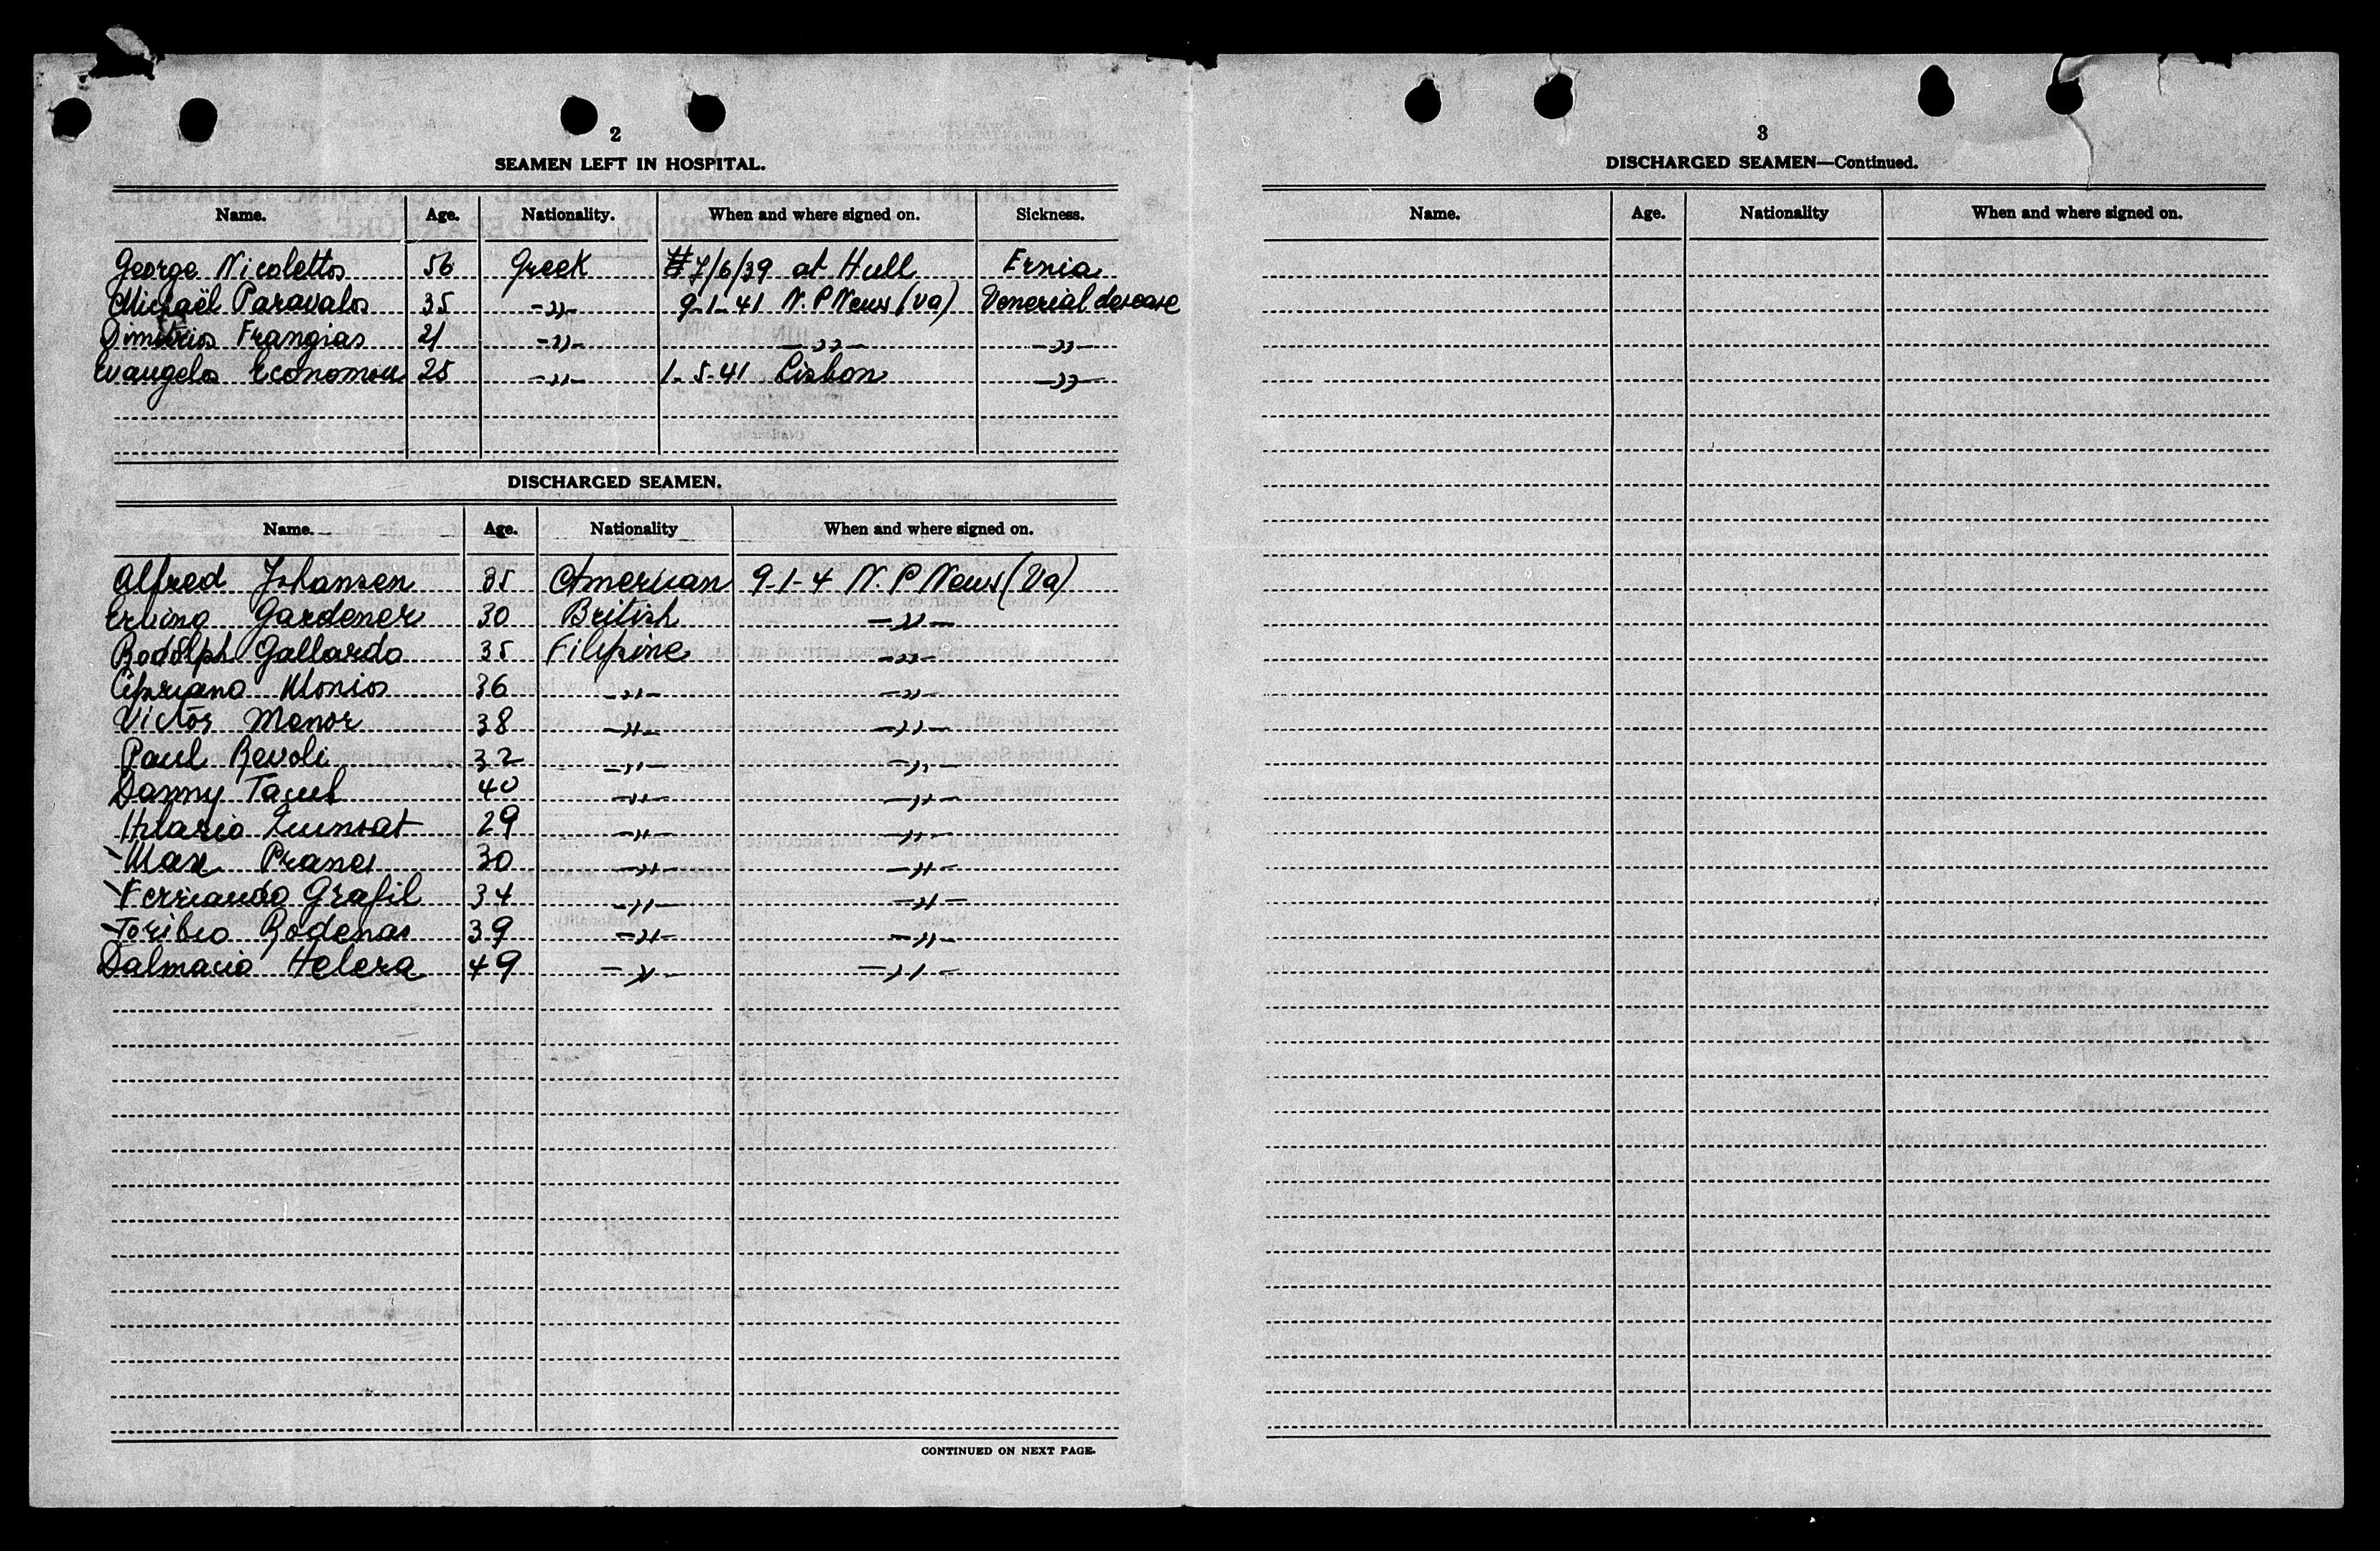 2
SEAMEN LEFT IN HOSPITAL.
Name. Age. Nationality. When and where signed on. Sickness.
George Nicolettos 56 Greek 7/6/39 at Hull Ernia
Michaël Paravalos 35 -,,- 9-1-41 N. P News (Va) Venerial desease
Dimitrios Frangias 21 -,,- -,,- -,,-
Evangelos Economou 25 -,,- 1-5-41 Lisbon -,,-
DISCHARGED SEAMEN.
Name. Age. Nationality When and where signed on.
Alfred Johansen 35 American 9-1-4 N. P News (Va)
Erling Gardener 30 British -,,-
Rodolph Gallardo 35 Filipine -,,-
Cipriano 36 -,,- -,,-
Victor Manor 38 -,,- -,,-
Paul Revoli 32 -,,- -,,-
Danny Tacub 40 -,,- -,,-
Hilario 29 -,,- -,,-
Max Pranes 30 -,,- -,,-
Fernando Grafil 34 -,,- -,,-
Toribio Rodenas 39 -,,- -,,-
Dalmacio Helera 49 -,,- -,,-
CONTINUED ON NEXT PAGE.
3
DISCHARGED SEAMEN—Continued.
Name. Age. Nationality When and where signed on.